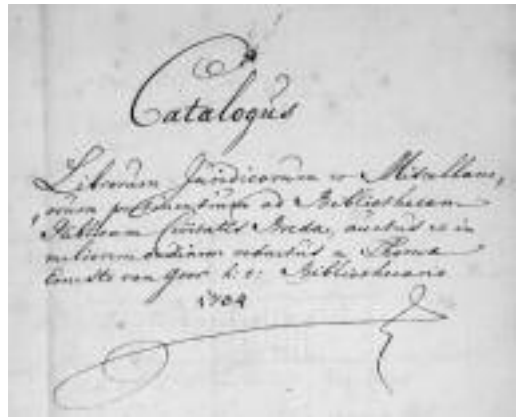 Catalogus
Librorum Juridicorum et Miscellane,
,orum pertinentium ad Bibliothecam
Publicam Civitatis Breda, auctus et in
meliorem ordinem redactus a Thoma
Ernesto van Goor h: t: Bibliothecario
1704